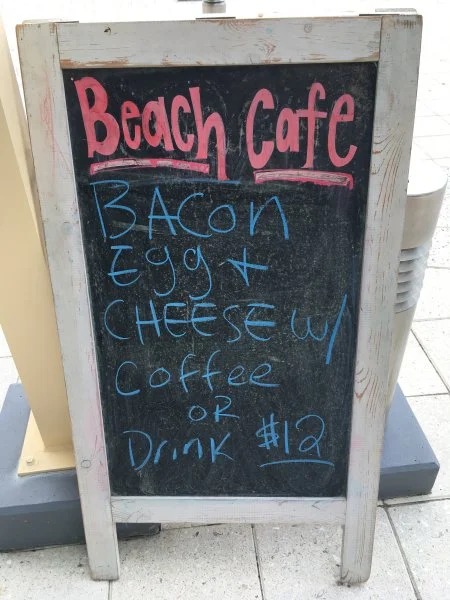 Beach Cafe
BACon
Egg +
CHEESE w/
Coffee
OR
Drink $12